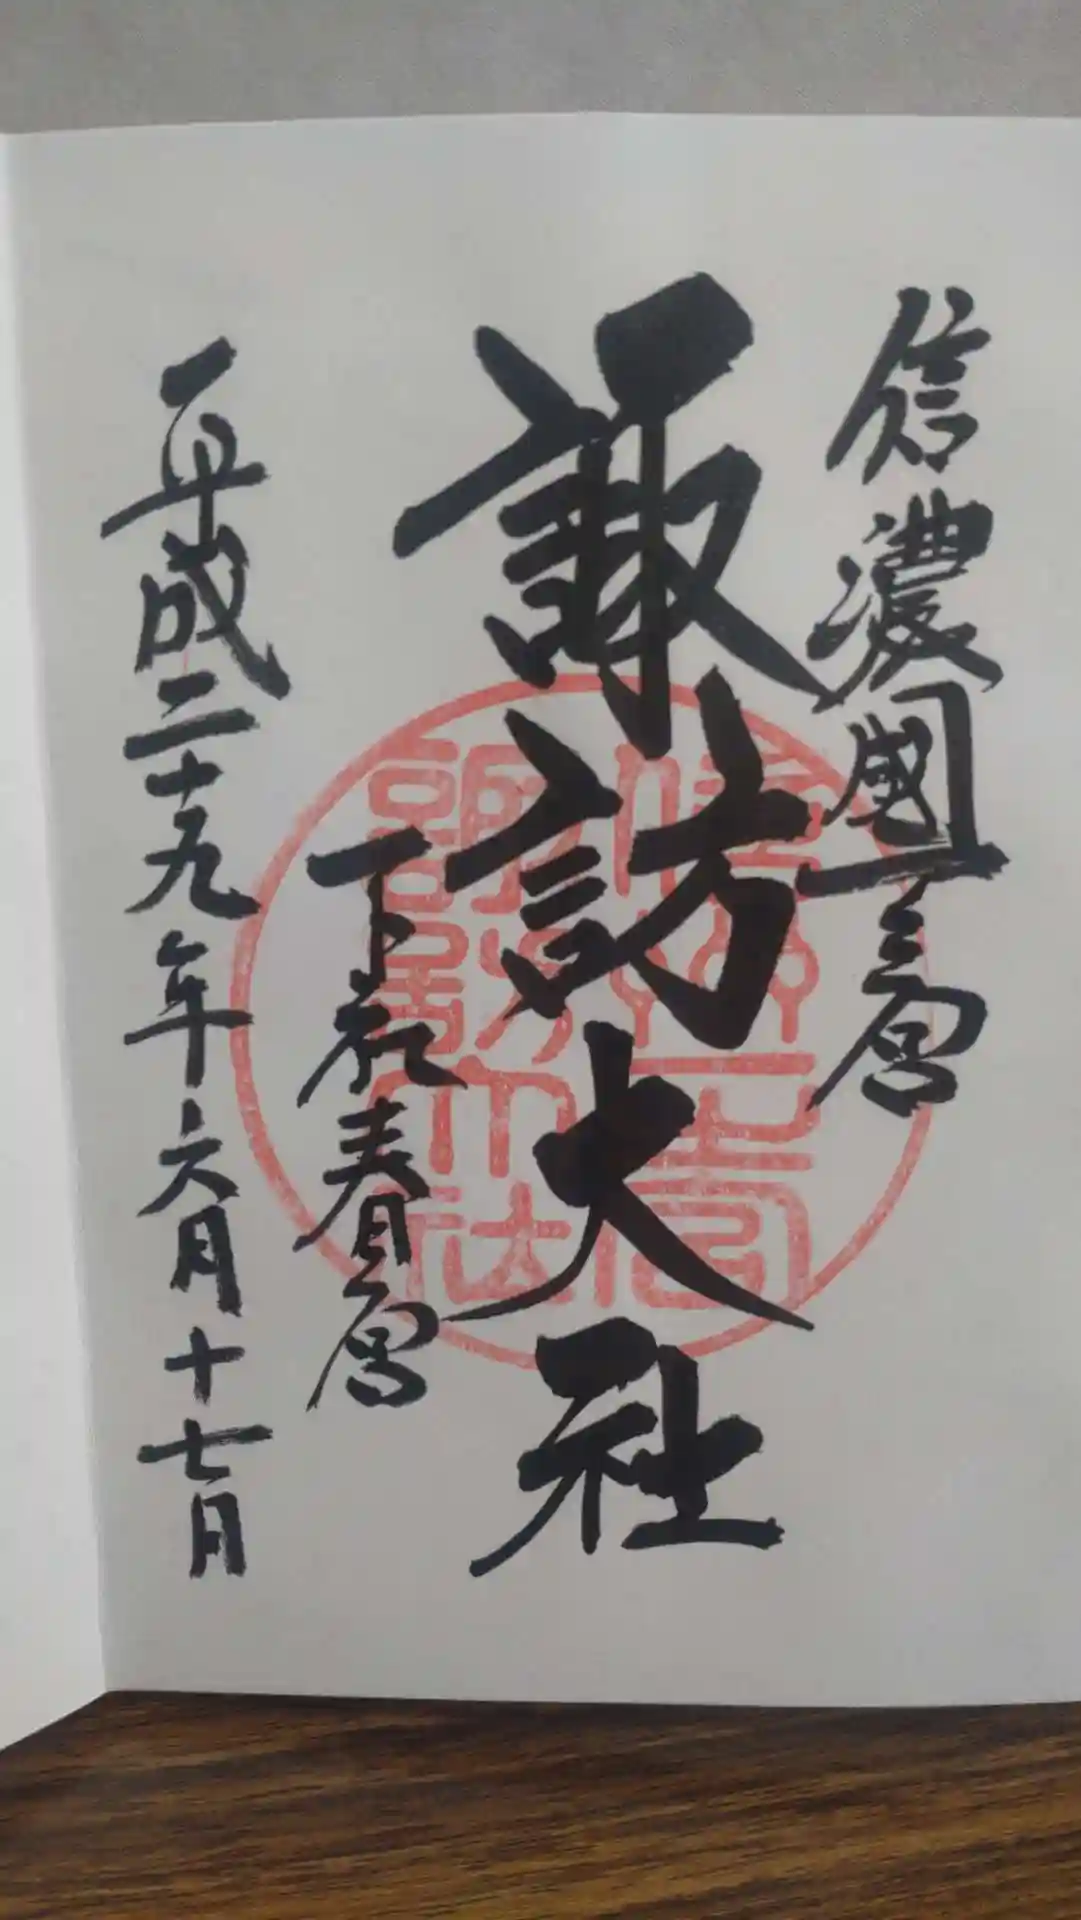 信濃國一之宮
諏訪大社
下社春宮
平成二十九年六月十七日
信濃國一之宮諏訪大社